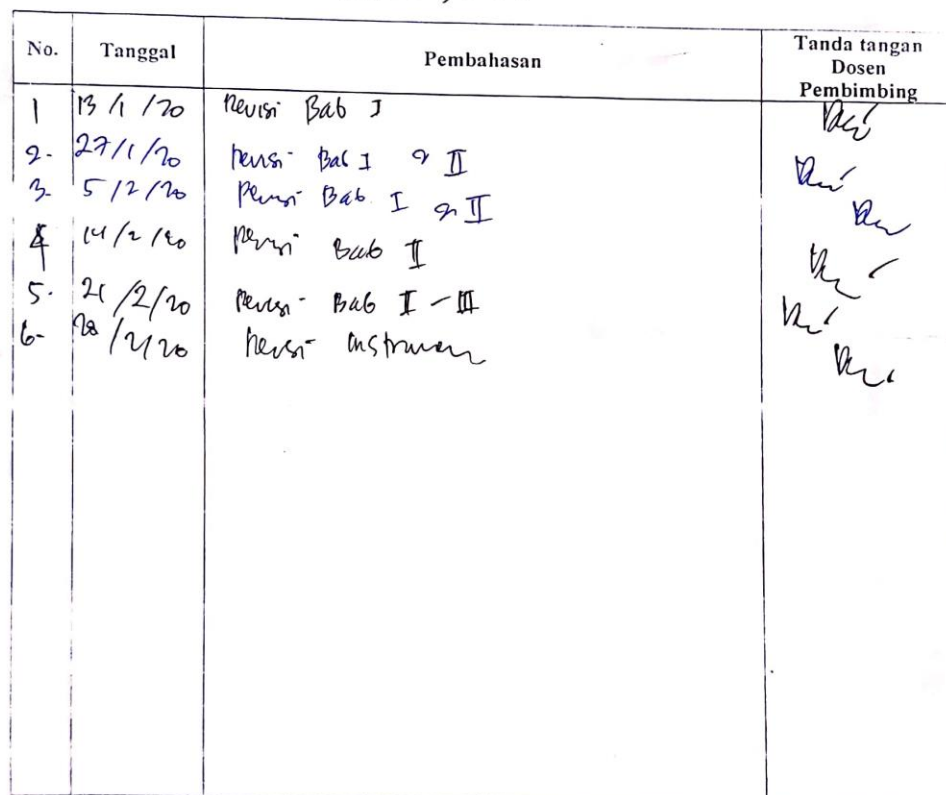 No. Tanggal Pembahasan Tanda tangan
Dosen
Pembimbing
1 13/1/20 Revisi Bab I
2. 27/1/20 Revisi Bab I & II
3. 5/2/20 Revisi Bab I & II
4 14/2/20 Revisi Bab II
5. 21/2/20 Revisi Bab I - III
6- 28/2/20 Revisi instrumen